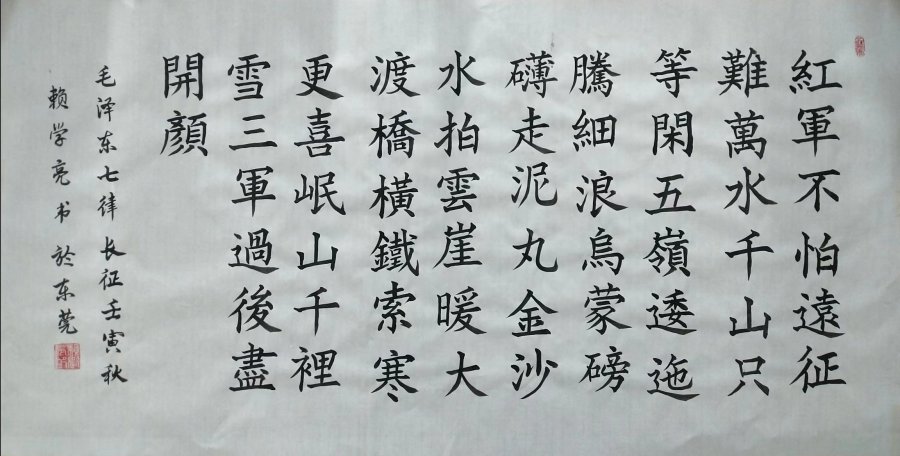 紅軍不怕遠征
難萬水千山只
等閑五嶺逶迤
騰細浪烏蒙磅
礴走泥丸金沙
水拍雲崖暖大
渡橋橫鐵索寒
更喜岷山千裡
雪三軍過後盡
開顏
毛泽东七律长征壬寅秋
赖学亮书於东莞